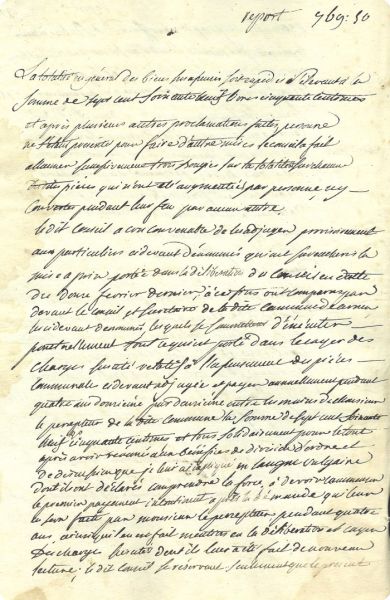 report 769:50
La totalité en général des biens
Somme de Sept cent Soixante neuf livres cinquante centimes
et après plusieurs autres proclamations faites, personne
pour faire d'autre mise le conseil a fait
allumer Successivement trois bougies sur la totalité
pièces qui n'ont été augmentées par personne ny
Couvertes pendant leur feu par aucun autre
Le dit Conseil a convenable de les adjuger provisoirement
aux particuliers cidevant dénommés qui ont
mise a prix portée dans la délibération du Conseil en datte
du Douze fevrier dernier, à ces fins ont comparu par
devant le conseil et Secrétaire de la dite Commune
les cidevant dénommés, lesquels se Soumettent d'éxécuter
ponctuellement tout ce qui est porté dans le cayer des
Charges relatif à l'affermement des pièces
Communales cidevant adjugées et payer annuellement pendant
quatre ans douzième par douzième entre les mains de Monsieur
le percepteur de la dite Commune la Somme de Sept cent Soixante
neuf cinquante centimes et tous solidairement pour le tout
après avoir renoncé aux bénéfices de division d'ordre et
de discussion que je leur ai expliqué en langue vulgaire
dont ils ont déclarés comprendre la force, à devoir commencer
le premier payement à la demande qui leur
en sera faite par monsieur le percepteur pendant quatre
ans, ainsi qu'il en est fait mention en la délibération et cayer
Des charges dont il leur a été fait de nouveau
lecture; le dit Conseil se réservant Seulement que le présent